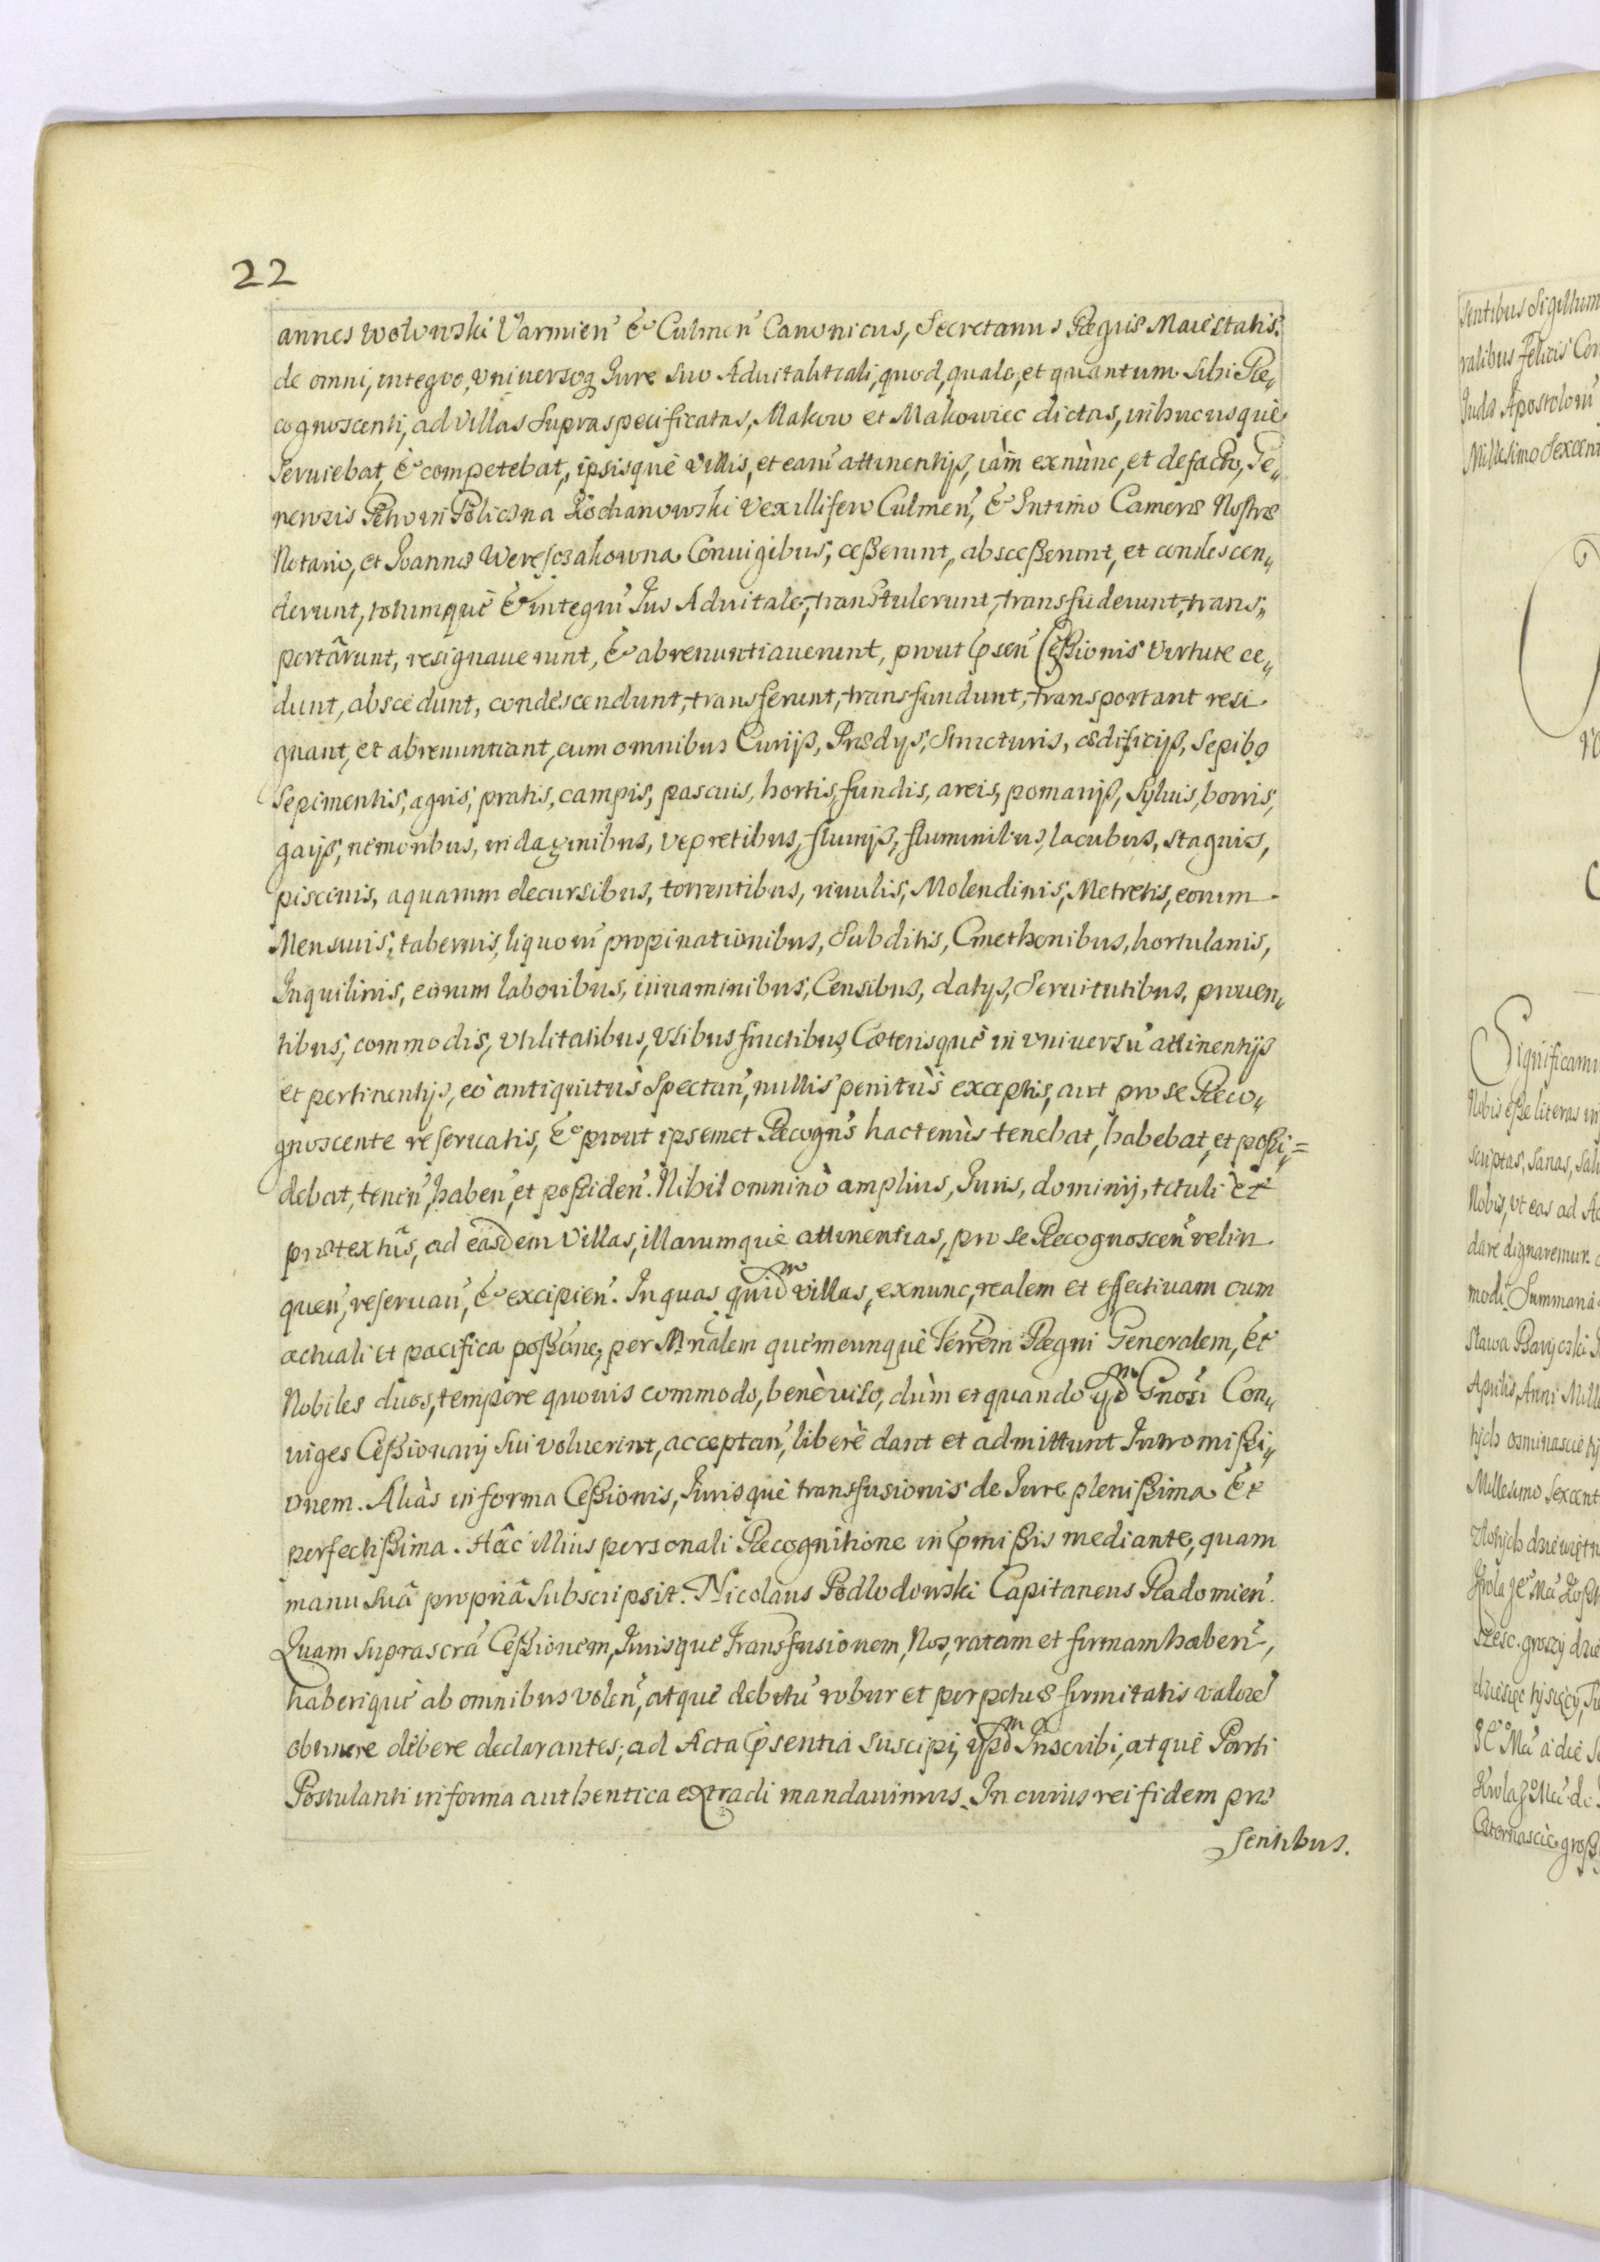 22
annes Wolowski Varmien̄ & Culmen̄ Canonicus, Secretarius Regiæ Maiestatis.
de omni, integro, vniversoq Jure suo Aduitalitiali, quod, quale, et quantum sibi Re„
cognoscenti, ad villas supraspecificatas, Makow et Makowiec dictas, in hucusquè
seruiebat, & competebat, ipsisquè villis, et earū attinentijs, iàm exnùnc, et defacto, Ge„
nerosis Petro in Policzna Kochanowski Vexillifero Culmen̄, & Intimo Cameræ Nostræ
Notario, et Joannæ Wereszczakowna Coniugibus, cesserunt, abscesserunt, et condescen„
derunt, totumquè & integrū Jus Aduitale, transtulerunt, transfuderunt, trans„
portârunt, resignauerunt, & abrenuntiauerunt, prout p̄sen̄ Cessionis virtute ce„
dunt, abscedunt, condescendunt, transferunt, transfundunt, transportant resi
gnant, et abrenuntiant, cum omnibus Curijs, Prædijs, structuris, ædificijs, sepibq
Sepimentis, agris, pratis, campis, pascuis, hortis, fundis, areis, pomarijs, syluis, borris,
gaijs, nemoribus, indaginibus, vepretibus, fluuijs, fluminibus, lacubus, stagnis,
piscinis, aquarum decursibus, torrentibus, riuulis, Molendinis, Metretis, eorum
Mensuris, tabernis, liquorū propinationibus, Subditis, Cmethonibus, hortulanis,
Inquilinis, eorum laboribus, iuuaminibus, Censibus, datijs, Seruitutibus, prouen„
tibus, commodis, vtilitatibus, vsibusfructibus, Cæterisquè in vniversū attinentijs
et pertinentijs, eò antiquitùs spectan̄, nullis penitùs exceptis, aut pro se Reco„
gnoscente reservatis, & prout ipsemet Recogn̄s hactenùs tenebat, habebat, et possi„
debat, tenen̄, haben̄, et possiden̄. Nihil omninò amplius, Juris, dominij, tituli et
prætextûs, ad easdem villas, illarumquè attinentias, pro se Recognoscen̄ relin
quen̄, reseruan̄, & excipien̄. In quas quid͞m villas, exnunc, realem et effectiuam cum
actuali et pacifica poss͞one, per Min͞alem quemcunquè Terr͞em Regni Generalem, et
Nobiles duos, tempore quouis commodo, benèuiso, dùm et quàndo ijd͞m G͞nosi Con„
iuges Cessionarij sui voluerint, acceptan̄, liberè dant et admittunt Intromissi„
onem. Aliàs in forma Cessionis, Jurisquè transfusionis de Jure plenissima et
perfectissima. Hâc illius personali Recognitione in p̄missis mediante, quam
manu suâ propriâ subscripsit. Nicolaus Podlodowski Capitaneus Radomien̄.
Quam suprascr̄a Cessionem, Jurisquè Transfusionem, Nos, ratam et firmam haben̄,
haberiquè ab omnibus volen̄, atquè debitū robur et perpetuæ firmitatis valorē
obtinere debere declarantes, ad Acta p̄sentia suscipi, ijsd͞m Inscribi, atquè Parti
Postulanti in forma authentica extradi mandauimus. In cuius rei fidem præ
sentibus.
sentibus Sigillum
Juda Apostolorū
Millesimo Sexcent
Significamus
Nobis esse literas in
scriptas, sanas, salu
Nobis, vt eas ad Ac
dare dignaremur.
modi. Summariâ
Aprilis, Anni Mille
Millesimo Sexcent